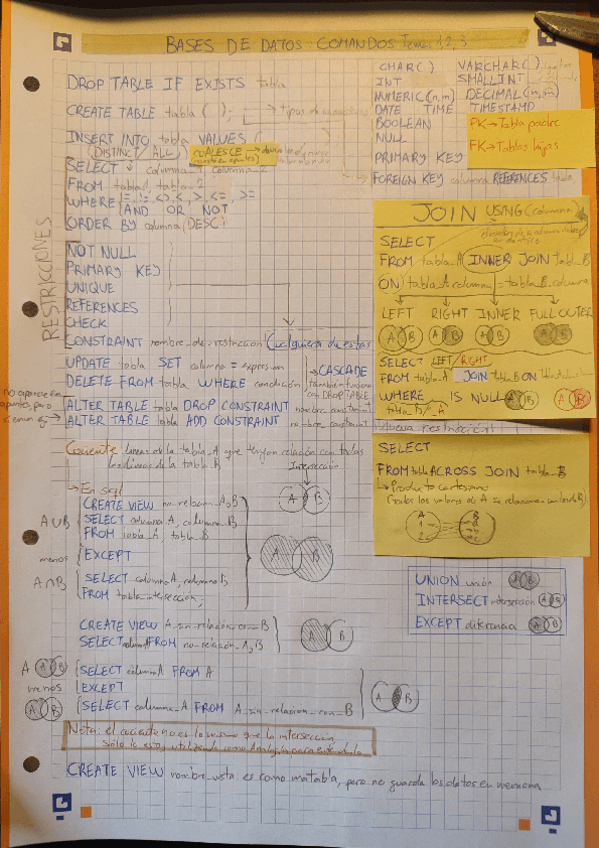 BASES DE DATOS COMANDOS Temas 1, 2, 3
DROP TABLE IF EXISTS tabla
CREATE TABLE tabla ( );
INSERT INTO tabla VALUES (
(DISTINCT / ALL)
COALESCE
SELECT columna_1, columna_2
FROM tabla_1, tabla_2
WHERE =, !=, <>, <, >, <=, >=
AND OR NOT
ORDER BY columna (DESC)
CHAR( ) VARCHAR( )
INT SMALLINT
NUMERIC(n,m) DECIMAL(n,m)
DATE TIME TIMESTAMP
BOOLEAN
NULL
PRIMARY KEY
FOREIGN KEY columna REFERENCES tabla
PK → Tabla padre
FK → Tablas hijas
RESTRICCIONES
NOT NULL
PRIMARY KEY
UNIQUE
REFERENCES
CHECK
CONSTRAINT nombre_de_restricción (Cualquiera de estas
UPDATE tabla SET columna = expresión
DELETE FROM tabla WHERE condición
CASCADE
también funciona
con DROP TABLE
no aparece en
apuntes, pero
ALTER TABLE tabla DROP CONSTRAINT nombre_constraint
ALTER TABLE tabla ADD CONSTRAINT nombre_constraint
JOIN USING (columna)
SELECT
FROM tabla_A INNER JOIN tabla_B
ON tabla_A.columna = tabla_B.columna
LEFT RIGHT INNER FULL OUTER
SELECT LEFT/RIGHT
FROM tabla_A JOIN tabla_B ON
WHERE IS NULL
¡Nueva restricción!
SELECT
FROM tabla A CROSS JOIN tabla_B
Producto cartesiano
(todos los valores de A se relacionan con los de B)
A B
Cociente líneas de la tabla_A que tengan relación con todas
las líneas de la tabla_B
Intersección
En sql
CREATE VIEW no_relación_A_B
A∪B SELECT columna_A, columna_B
FROM tabla_A, tabla_B
menos EXCEPT
A∩B SELECT columna_A, columna_B
FROM tabla_intersección;
CREATE VIEW A_sin_relación_con_B
SELECT columna_A FROM no_relación_A_B
UNION unión
INTERSECT intersección
EXCEPT diferencia
A SELECT columna_A FROM A
menos EXCEPT
SELECT columna_A FROM A_sin_relacion_con_B
Nota: el cociente no es lo mismo que la intersección
sólo lo estoy utilizando como Analogía para entenderlo
CREATE VIEW nombre_vista es como una tabla, pero no guarda los datos en memoria